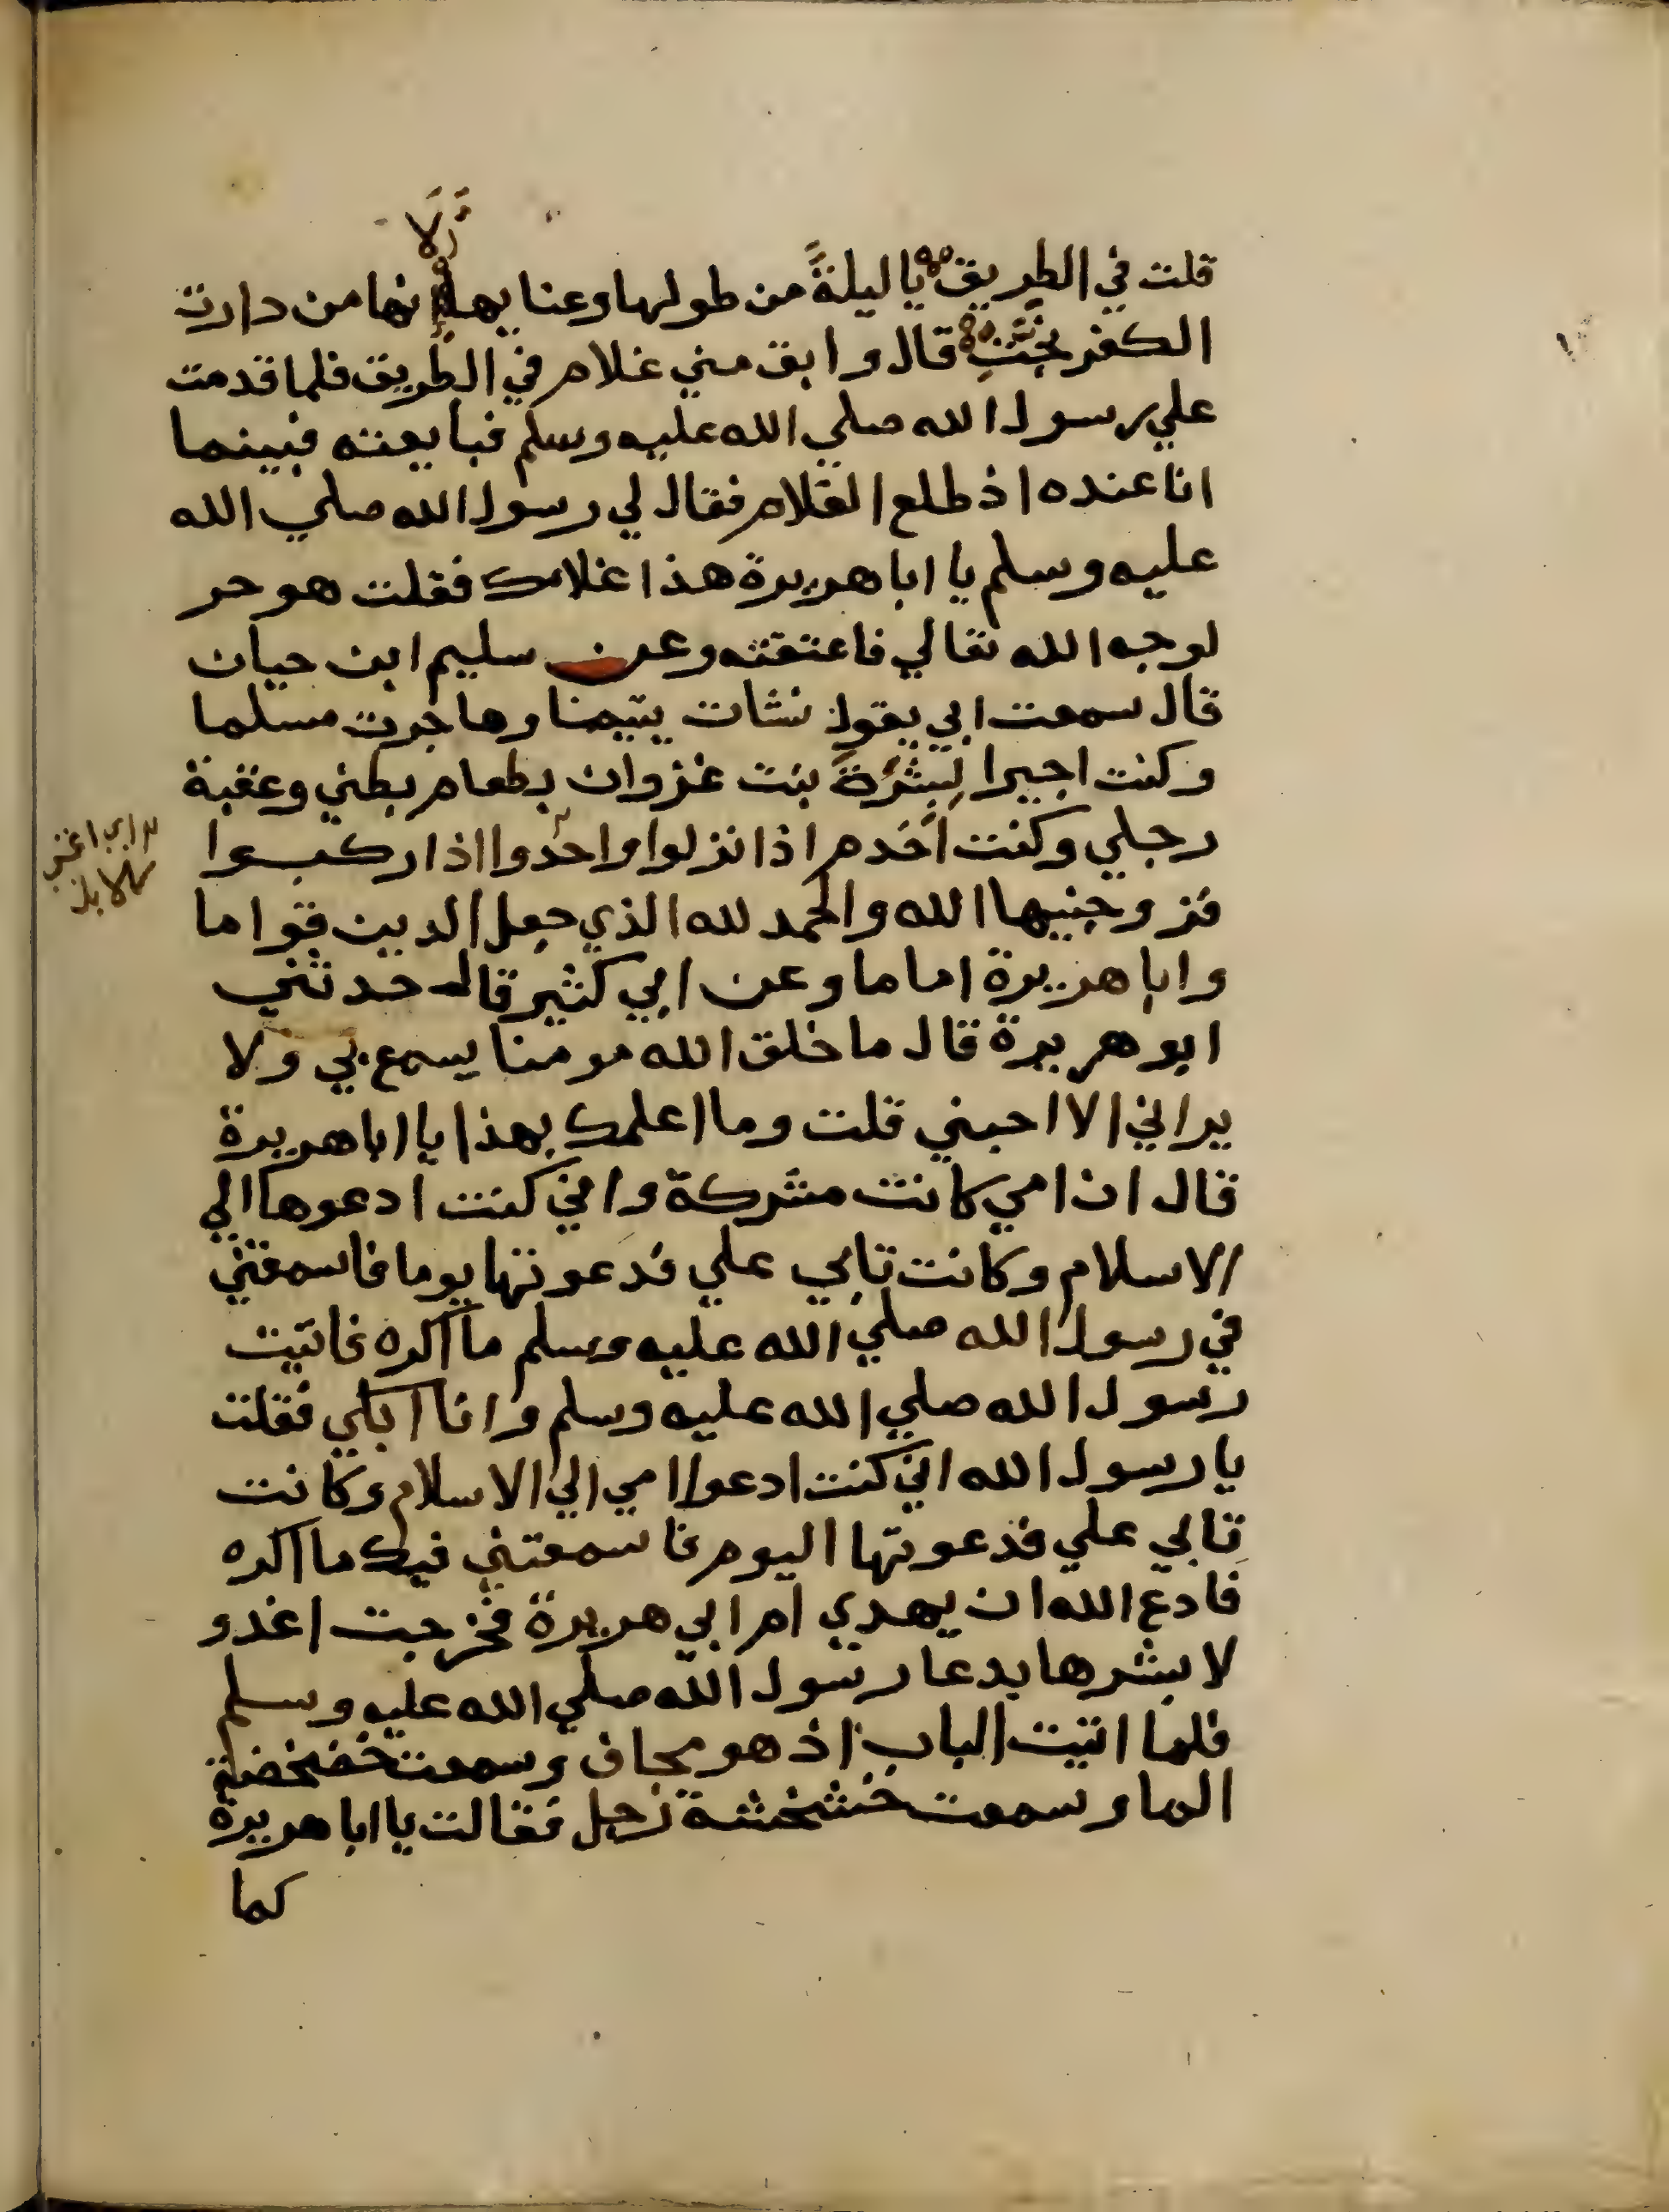 قلت في الطريق يا ليلةً من طولها وعنايها إنها من دارت
الكفر نجت قال وابق مني غلام في الطريق فلما قدمت
علي رسول الله صلي الله عليه وسلم فبايعته فبينما
انا عنده اذ طلع الغلام فقال لي رسول الله صلي الله
عليه وسلم يا ابا هريرة هذا غلامك فقلت هو حر
لوجه الله تعالي فاعتقته وعن سليم ابن حيان
قال سمعت ابي يقول نشات يتيما وهاجرت مسلما
وكنت اجيرا لبثرة بنت غزوان بطعام بطني وعقبة
رجلي وكنت اخدم اذا نزلوا واحدوا اذا ركبوا
فزوجنيها الله والحمد لله الذي جعل الدين قواما
وابا هريرة اماما وعن ابي كثير قال حدثني
ابو هريرة قال ما خلق الله مومنا يسمع بي ولا
يراني الا احبني قلت وما اعلمك بهذا يا ابا هريرة
قال ان امي كانت مشركة واني كنت ادعوها الي
الاسلام وكانت تابي علي فدعوتها يوما فاسمعتني
في رسول الله صلي الله عليه وسلم ما اكره فاتيت
رسول الله صلي الله عليه وسلم وانا ابكي فقلت
يا رسول الله اني كنت ادعوا امي الي الاسلام وكانت
تابي علي فدعوتها اليوم فاسمعتني فيك ما اكره
فادع الله ان يهدي ام ابي هريرة فخرجت اغدو
لابشرها بدعا رسول الله صلي الله عليه وسلم
فلما اتيت الباب اذ هو مجاف وسمعت خضخضة
الما وسمعت خشخشة رجل فقالت يا ابا هريرة
كما